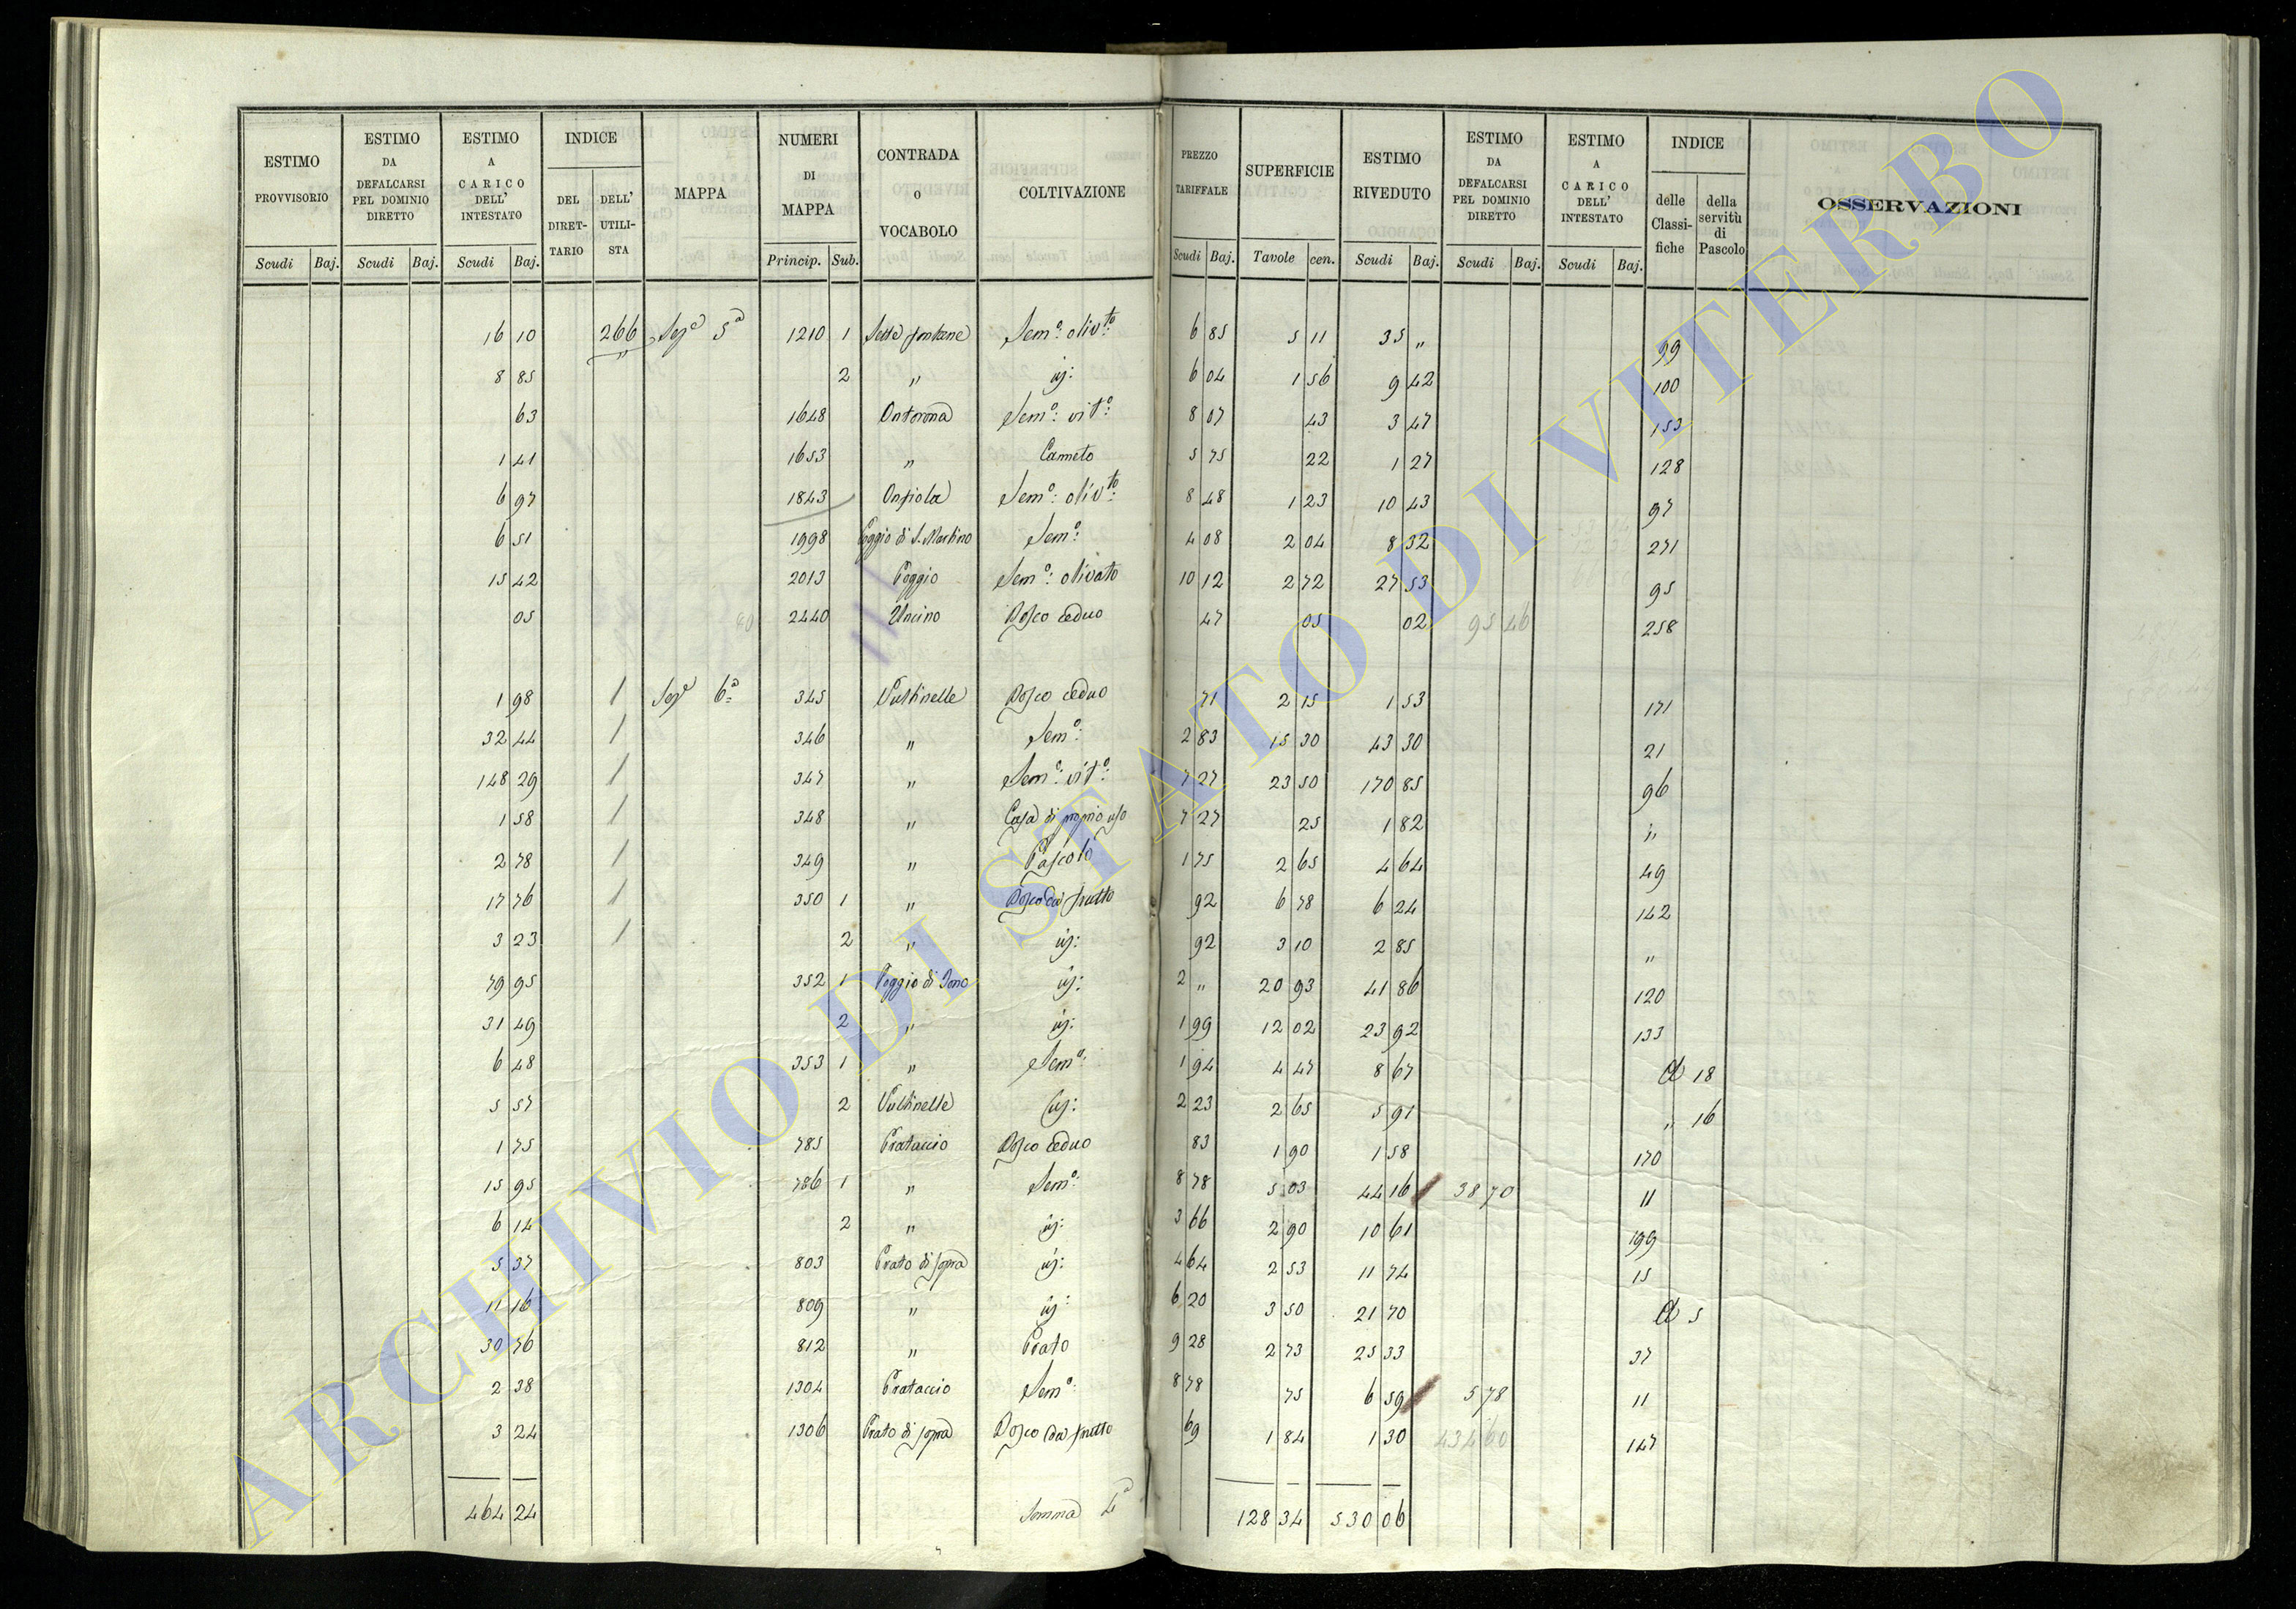 ESTIMO PROVVISORIO | ESTIMO DA DEFALCARSI PEL DOMINIO DIRETTO | ESTIMO A CARICO DELL' INTESTATO | INDICE DEL DIRET-TARIO | DELL' UTILI-STA | MAPPA | NUMERI DI MAPPA | CONTRADA O VOCABOLO | COLTIVAZIONE | PREZZO TARIFFALE | SUPERFICIE | ESTIMO RIVEDUTO | ESTIMO DA DEFALCARSI PEL DOMINIO DIRETTO | ESTIMO A CARICO DELL' INTESTATO | INDICE delle Classi-fiche | della servitù di Pascolo | OSSERVAZIONI
Scudi Baj. | Scudi Baj. | Scudi Baj. | Princip. Sub. | Scudi Baj. | Tavole cen. | Scudi Baj. | Scudi Baj. | Scudi Baj.
16 10 | 266 | Sez.e 5a | 1210 1 | Sette fontane | Sem.o: oliv.to | 6 85 | 5 11 | 35 „ | 99
8 85 | „ | 2 | „ | id: | 6 04 | 1 56 | 9 42 | 100
63 | 1648 | Sem.o: vit.o: | 8 07 | 43 | 3 47 | 153
1 41 | 1653 | „ | Canneto | 5 75 | 22 | 1 27 | 128
6 97 | 1843 | Sem.o: oliv.to: | 8 48 | 1 23 | 10 43 | 97
6 51 | 1998 | Poggio di S. Martino | Sem.o: | 4 08 | 2 04 | 8 32 | 271
15 42 | 2013 | Poggio | Sem.o: olivato | 10 12 | 2 72 | 27 53 | 95
05 | 2440 | Uncino | Bosco ceduo | 47 | 05 | 02 | 95 46 | 258
1 98 | 1 | Sez.e 6a | 345 | Bosco ceduo | 71 | 2 15 | 1 53 | 171
32 44 | 1 | 346 | „ | Sem.o: | 2 83 | 15 30 | 43 30 | 21
148 29 | 1 | 347 | „ | Sem.o: vit.o: | 7 27 | 23 50 | 170 85 | 96
1 58 | 1 | 348 | „ | Casa di proprio uso | 7 27 | 25 | 1 82 | „
2 78 | 1 | 349 | „ | Pascolo | 1 75 | 2 65 | 4 64 | 49
17 76 | 1 | 350 1 | „ | Bosco da frutto | 92 | 6 78 | 6 24 | 142
3 23 | 1 | 2 | „ | id: | 92 | 3 10 | 2 85 | „
79 95 | 352 1 | Poggio di | id: | 2 „ | 20 93 | 41 86 | 120
31 49 | 2 | „ | id: | 1 99 | 12 02 | 23 92 | 133
6 48 | 353 1 | „ | Sem.o: | 1 94 | 4 47 | 8 67 | A 18
5 57 | 2 | id: | 2 23 | 2 65 | 5 91 | „ 16
1 75 | 785 | Prataccio | Bosco ceduo | 83 | 1 90 | 1 58 | 170
15 95 | 786 1 | „ | Sem.o: | 8 78 | 5 03 | 44 16 | 38 70 | 11
6 14 | 2 | „ | id: | 3 66 | 2 90 | 10 61 | 199
5 37 | 803 | Prato di sopra | id: | 4 64 | 2 53 | 11 74 | 15
11 16 | 809 | „ | id: | 6 20 | 3 50 | 21 70 | A 5
30 76 | 812 | „ | Prato | 9 28 | 2 73 | 25 33 | 37
2 38 | 1304 | Prataccio | Sem.o: | 8 78 | 75 | 6 59 | 5 78 | 11
3 24 | 1306 | Prato di sopra | Bosco da frutto | 69 | 1 84 | 1 30 | 434 60 | 147
464 24 | Somma 4a | 128 34 | 530 06
ARCHIVIO DI STATO DI VITERBO